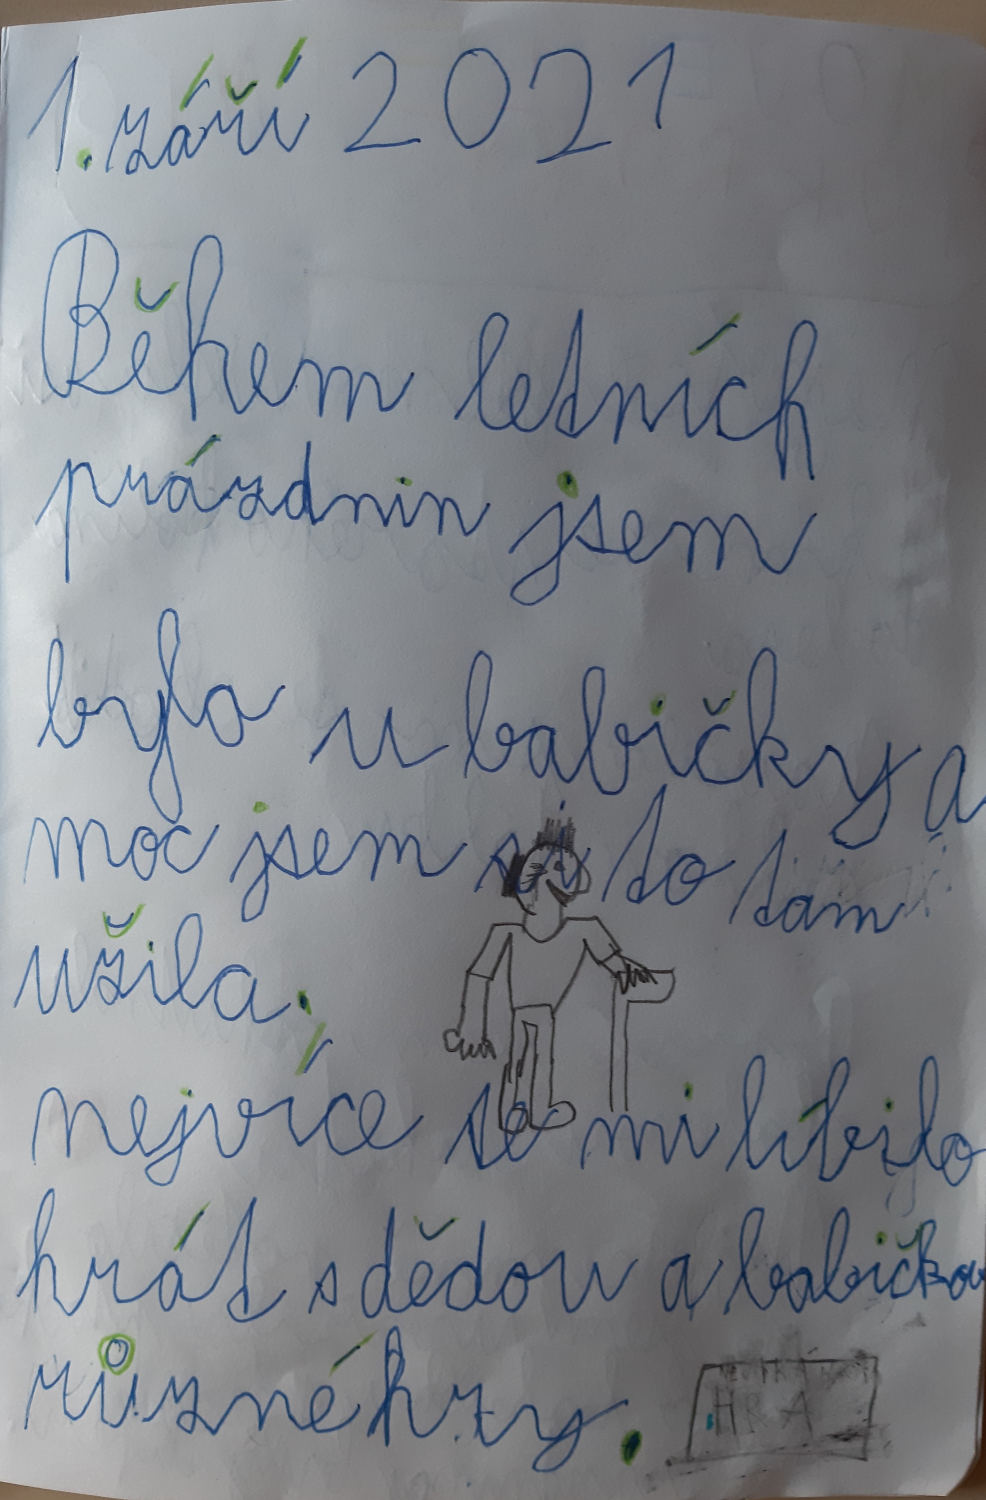 1. září 2021
Během letních
prázdnin jsem
byla u babičky a
moc jsem si to tam
užila.
nejvíce se mi líbilo
hrát s dědou a babičkou
různé hry.
HRA